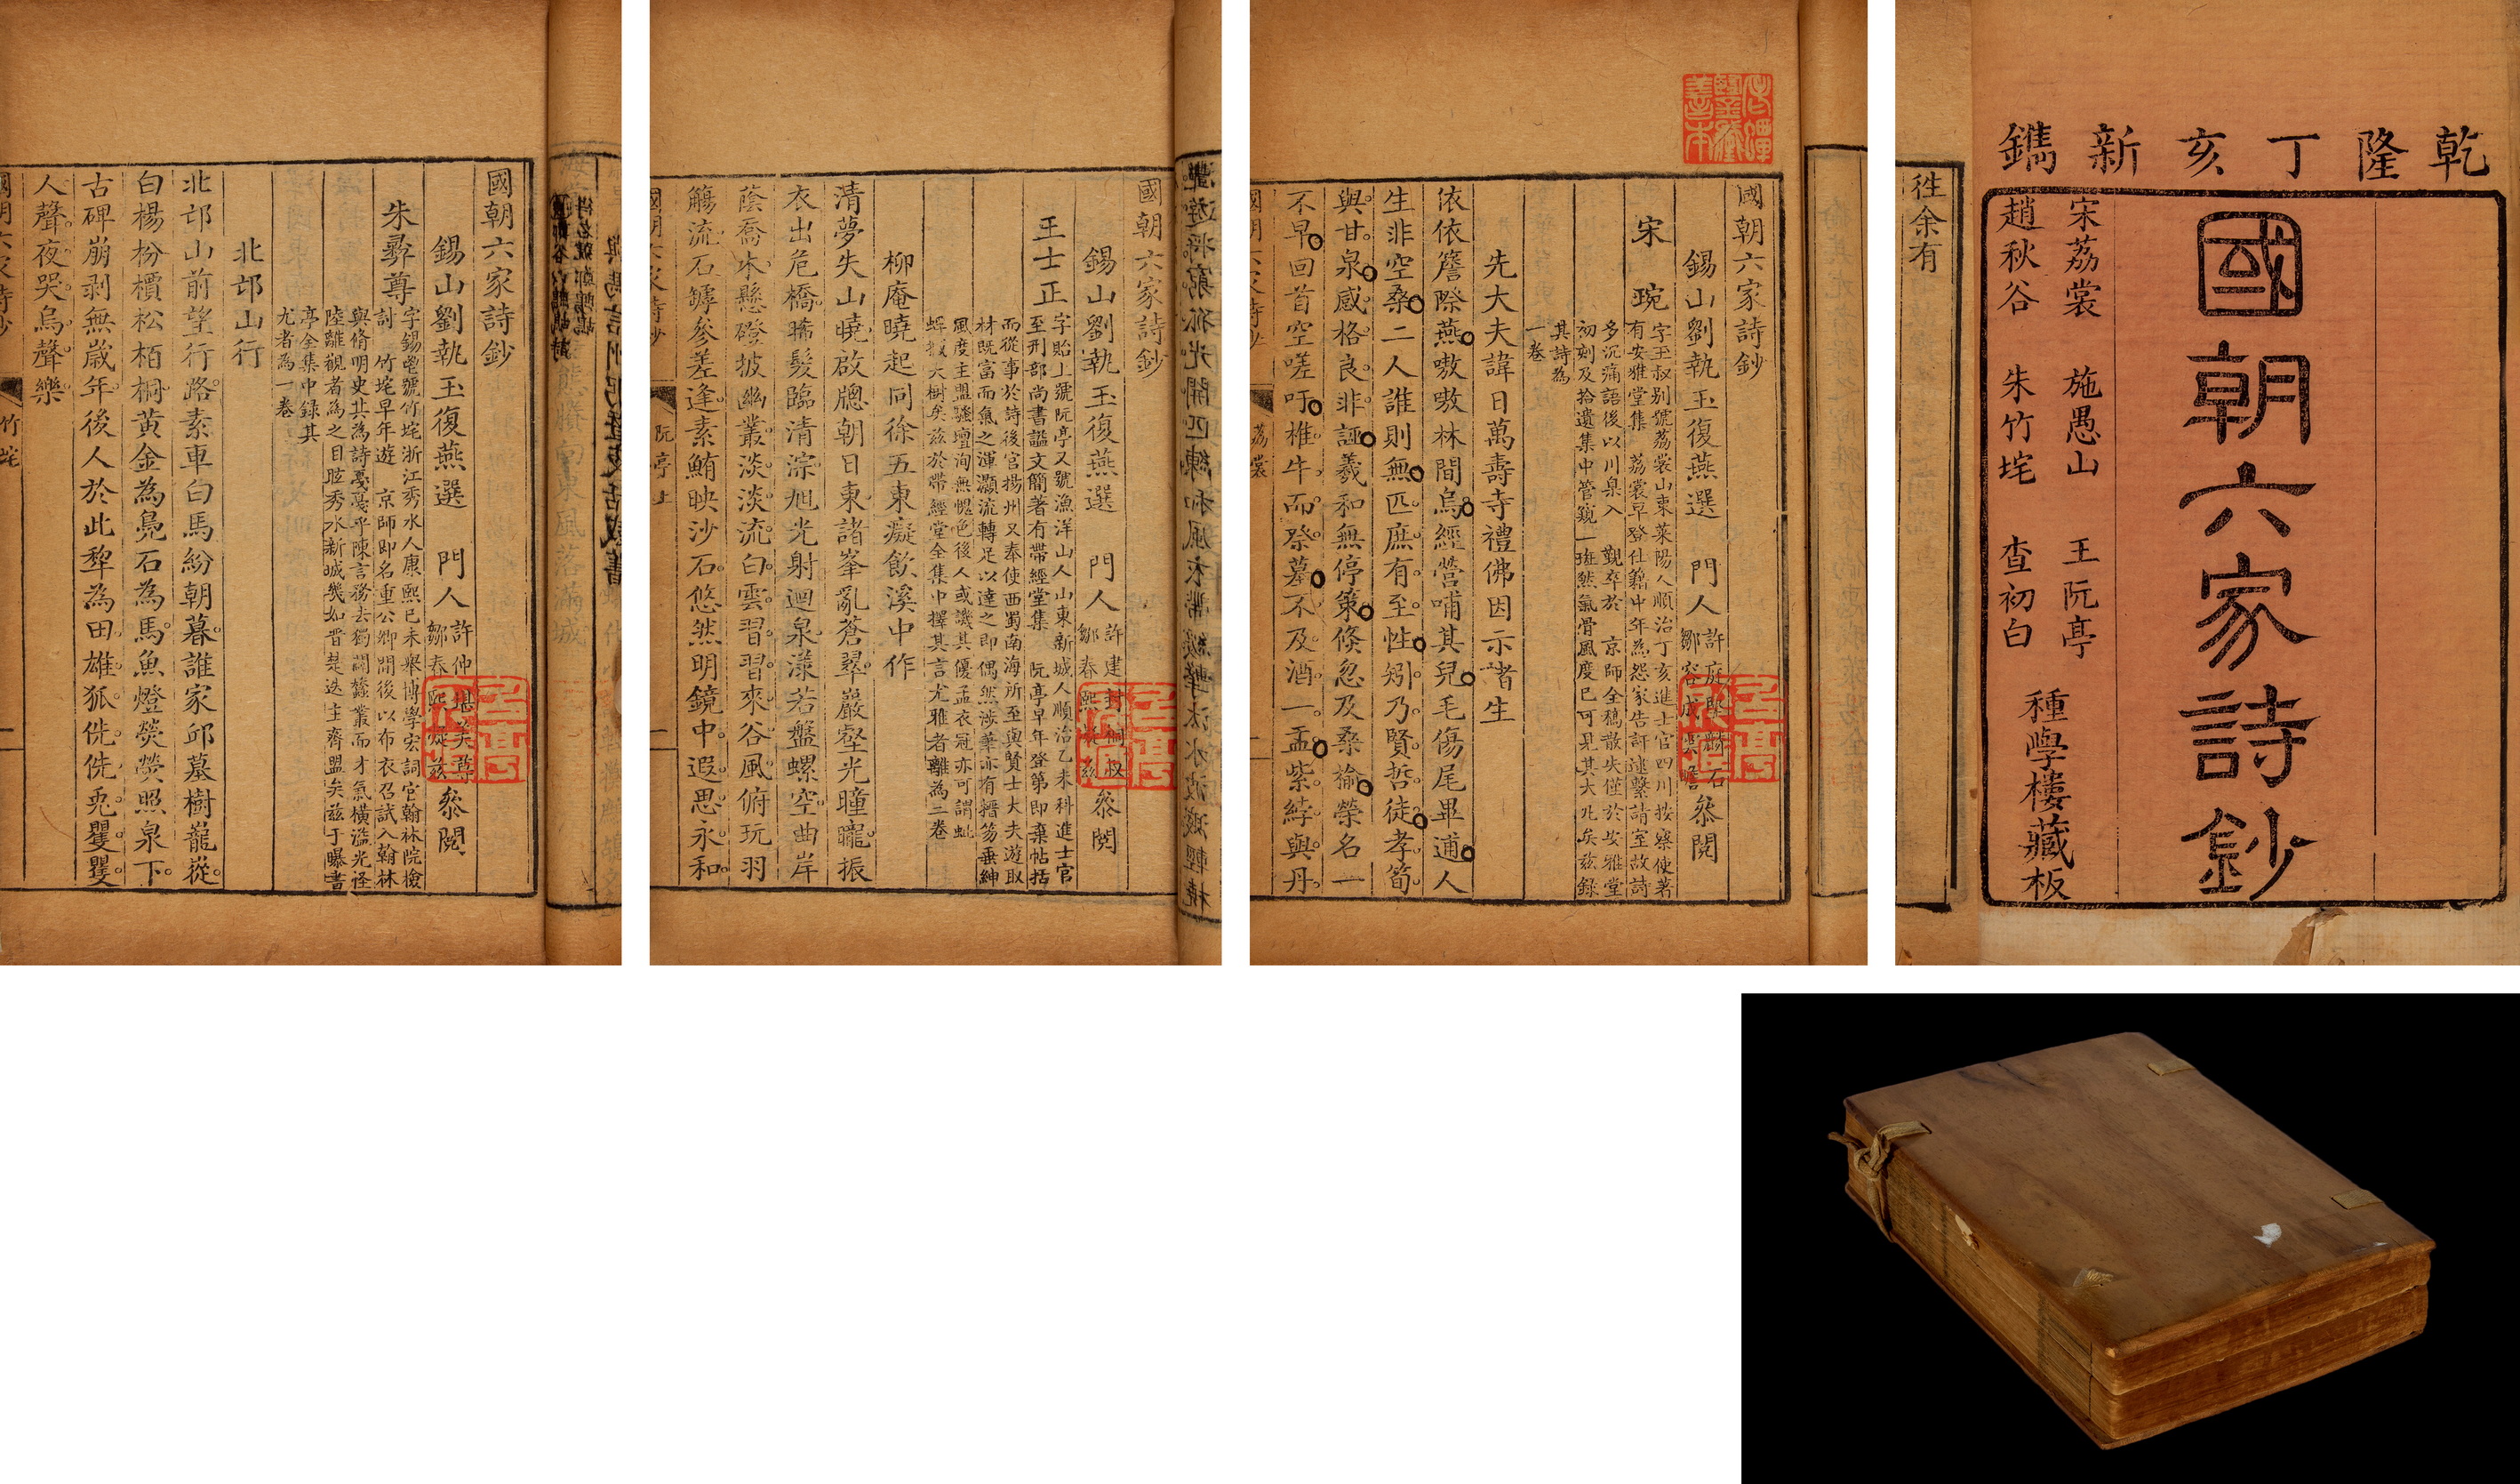 乾隆丁亥新鐫
宋荔裳 施愚山 王阮亭
國朝六家詩鈔
趙秋谷 朱竹垞 查初白
種學樓藏板
徃余有
國朝六家詩鈔
錫山劉執玉復燕選 門人
許庭堅
鄒容成
參閱
宋琬
字玉叔别號荔裳山東萊陽人順治丁亥進士官四川按察使著
有安雅堂集 荔裳早登仕籍中年為怨家告訐逮繫請室故詩
多沉痛語後以川臬入 覲卒於 京師全稿散失僅於安雅堂
初刻及拾遺集中管窺一斑然氣骨風度已可見其大凡矣兹録
其詩為
一卷
先大夫諱日萬壽寺禮佛因示諸生
依依簷際燕嗷嗷林間烏經營哺其兒毛傷尾畢逋人
生非空桑二人誰則無匹庶有至性矧乃賢哲徒孝筍
與甘泉感格良非誣羲和無停策倏忽及桑榆榮名一
不早回首空嗟吁椎牛而祭墓不及酒一盂紫綍與丹
國朝六家詩鈔 荔裳 一
國朝六家詩鈔
錫山劉執玉復燕選 門人
許建封
鄒春熙
參閱
王士正
字貽上號阮亭又號漁洋山人山東新城人順治乙未科進士官
至刑部尚書諡文簡著有帶經堂集 阮亭早年登第即棄帖括
而從事於詩後官揚州又奉使西蜀南海所至與賢士大夫遊取
材既富而氣之渾灝流轉足以達之即偶然涉筆亦有搢笏垂紳
風度主盟騷壇洵無愧色後人或譏其優孟衣冠亦可謂蚍
蜉撼大樹矣兹於帶經堂全集中擇其言尤雅者離為二卷
柳庵曉起同徐五東癡飲溪中作
清夢失山曉啟牕朝日東諸峯亂蒼翠巖壑光曈曨振
衣出危橋晞髮臨清淙旭光射迴泉漾若盤螺空曲岸
蔭喬木懸磴披幽叢淡淡流白雲習習來谷風俯玩羽
觴流石罅參差逢素鮪映沙石悠然明鏡中遐思永和
國朝六家詩鈔 阮亭上 一
國朝六家詩鈔
錫山劉執玉復燕選 門人
許仲堪
鄒春熙
參閱
朱彝尊
字錫鬯號竹垞浙江秀水人康熙己未舉博學宏詞官翰林院檢
討 竹垞早年遊 京師即名重公卿間後以布衣召試入翰林
與脩明史其為詩戞戞乎陳言務去獨闢蠶叢而才氣橫溢光怪
陸離觀者為之目眩秀水新城幾如晉楚迭主齊盟矣兹于曝書
亭全集中録其
尤者為一卷
北邙山行
北邙山前望行路素車白馬紛朝暮誰家邱墓樹巃嵸
白楊枌檟松栢桐黄金為鳧石為馬魚燈熒熒照泉下
古碑崩剥無歲年後人於此犂為田雄狐侁侁兎矍矍
人聲夜哭烏聲樂
國朝六家詩鈔 竹垞 一